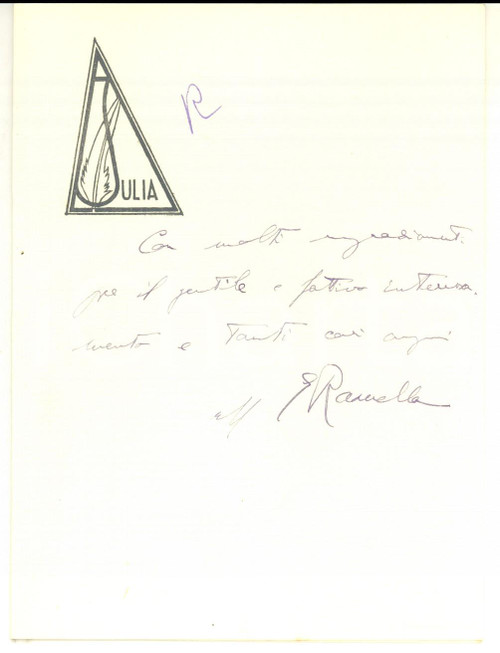 JULIA
R
Con molti ringraziamenti
per il gentile e fattivo interessa-
mento e tanti cari auguri
E Ramella